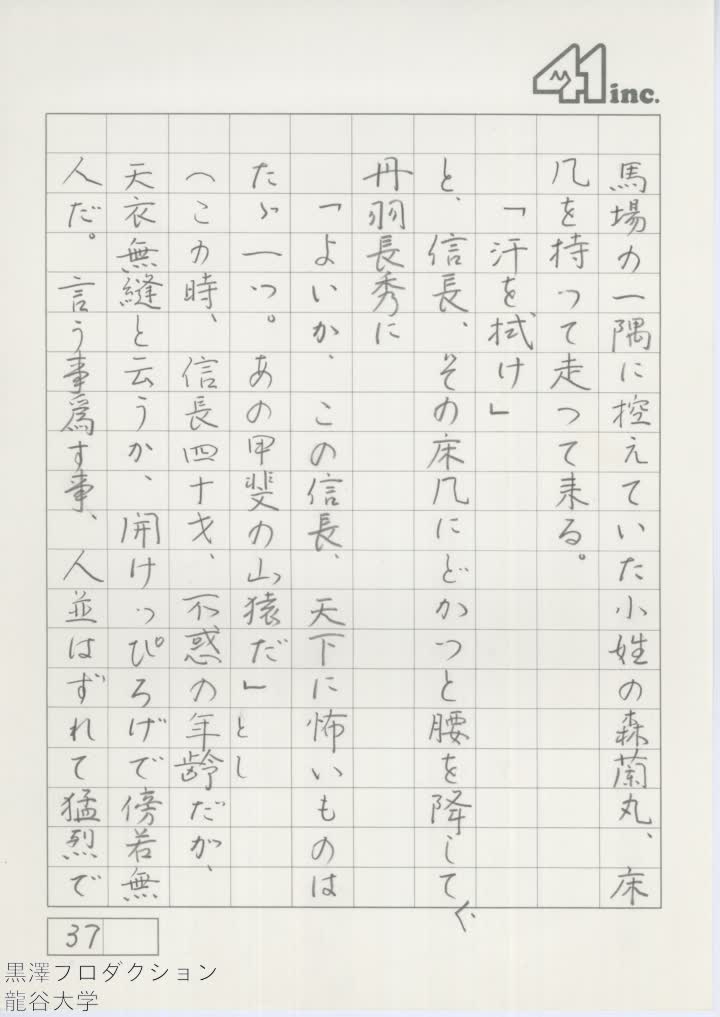 41 inc.
馬場の一隅に控えていた小姓の森蘭丸、床
几を持って走って来る。
「汗を拭け」
と、信長、その床几にどかっと腰を降して
丹羽長秀に
「よいか、この信長、天下に怖いものは
たゞ一つ。あの甲斐の山猿だ」
(この時、信長四十才、不惑の年齢だが、
とし
天衣無縫と云うか、開けっぴろげで傍若無
人だ。言う事為す事、人並はずれて猛烈で
37
黒澤プロダクション
龍谷大学